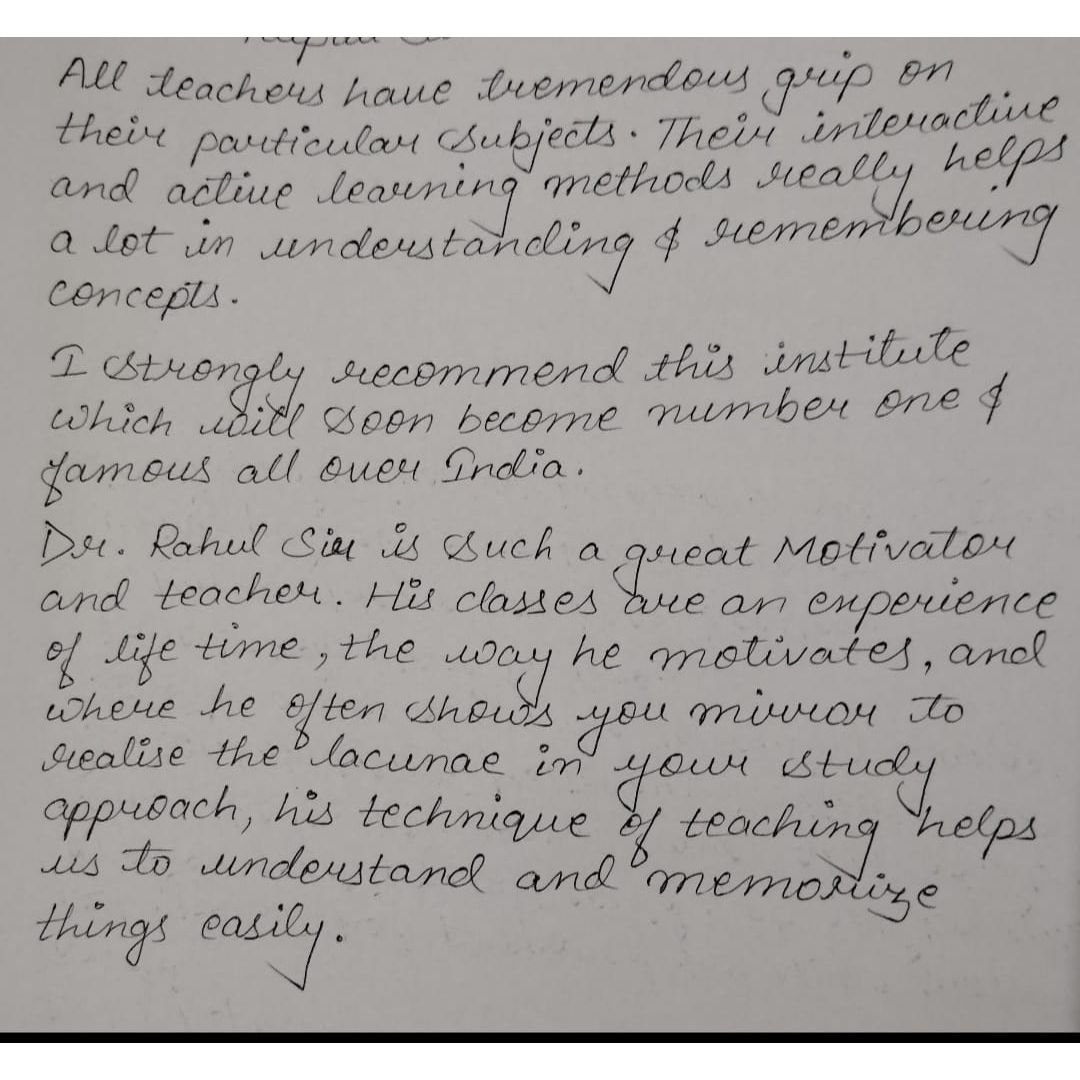 All teachers have tremendous grip on
their particular subjects. Their interactive
and active learning methods really helps
a lot in understanding & remembering
concepts.
I strongly recommend this institute
which will soon become number one &
famous all over India.
Dr. Rahul Sir is such a great Motivator
and teacher. His classes are an experience
of life time, the way he motivates, and
where he often shows you mirror to
realise the lacunae in your study
approach, his technique of teaching helps
us to understand and memorize
things easily.